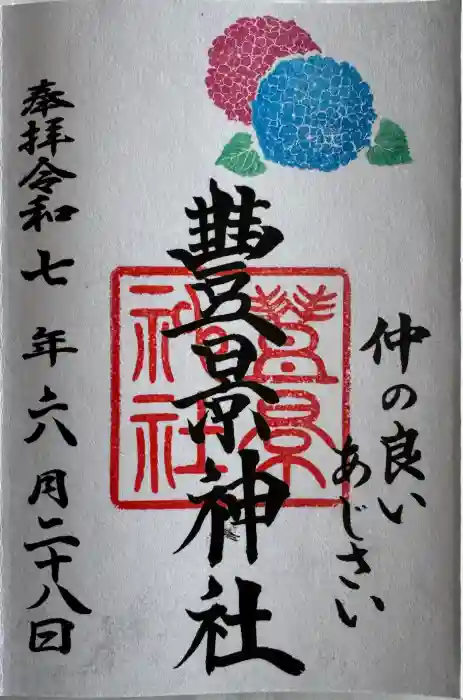 仲の良い
あじさい
豊景神社
豊景神社
奉拝令和七年六月二十八日